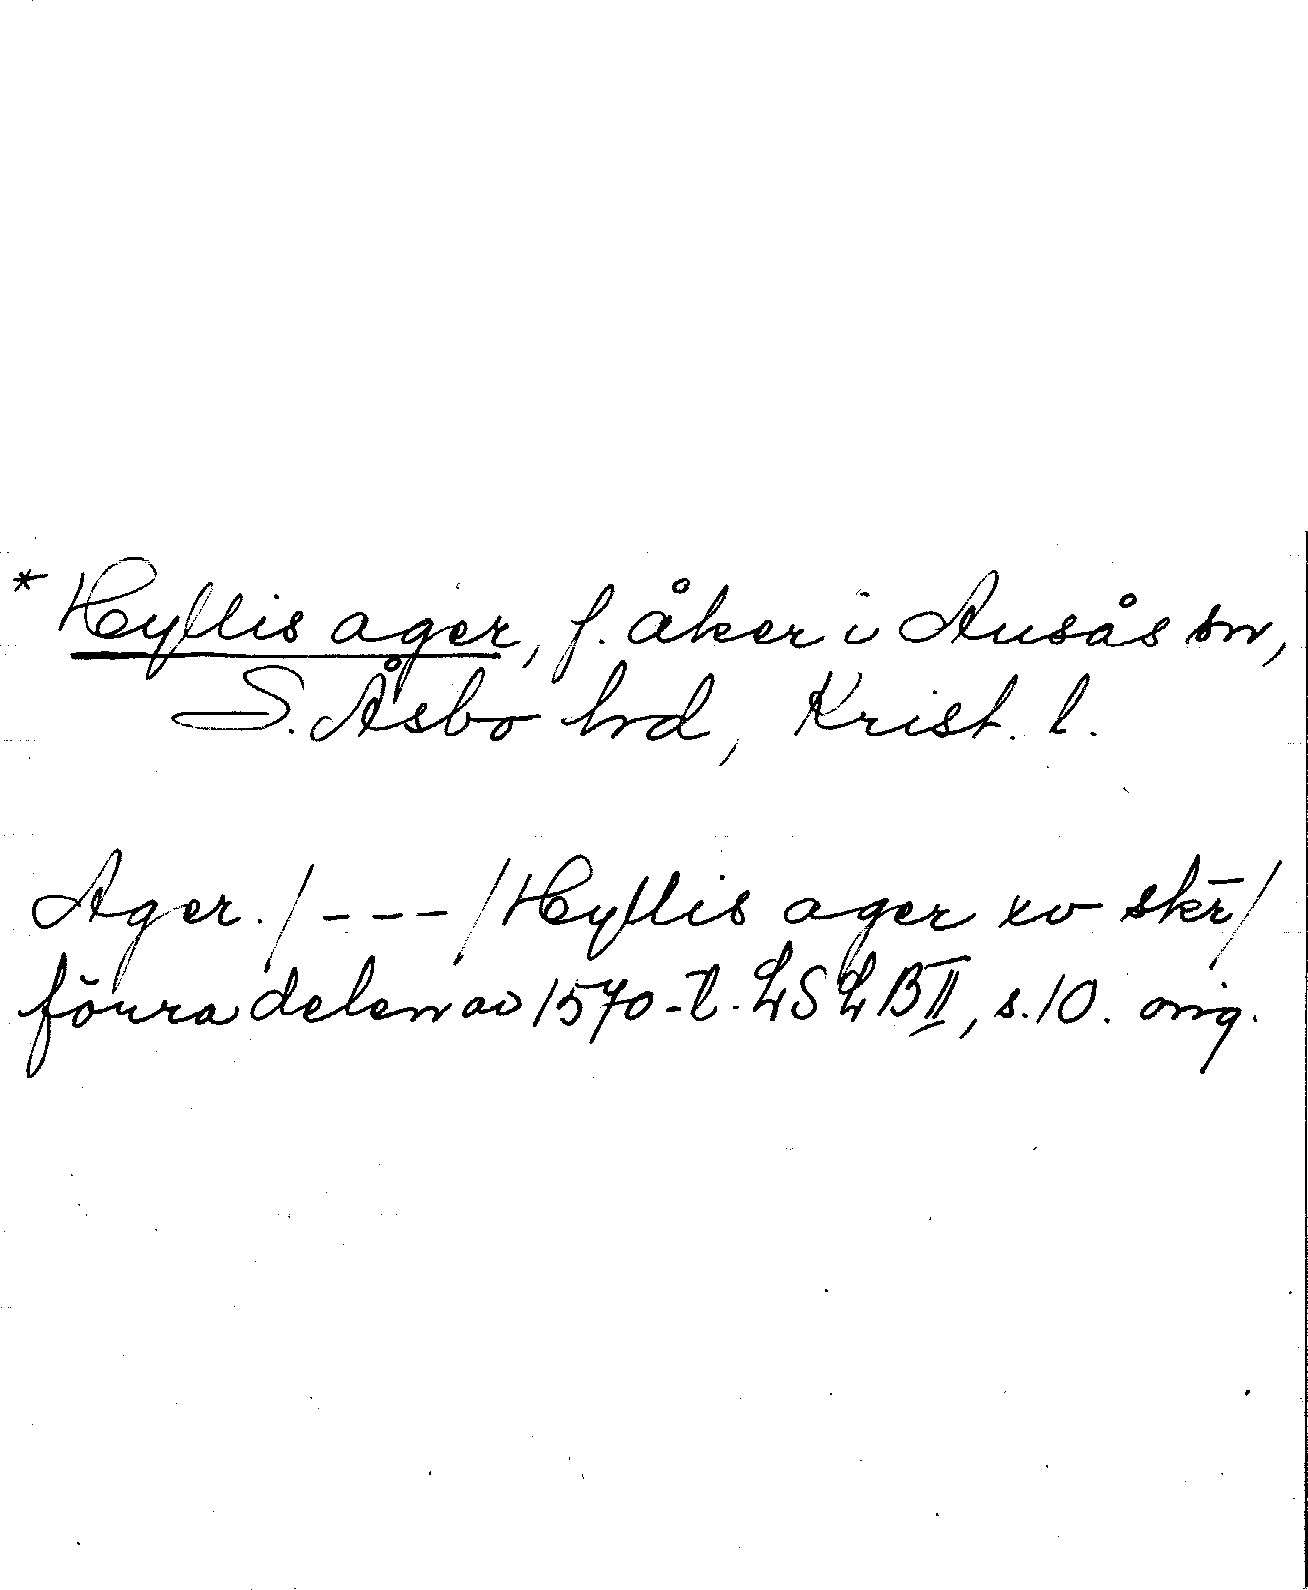 * Hyllis ager, f. åker i Ausås sn,
S. Åsbo hd, Krist. l.
Ager. /---/ Hyllis ager xv skr̄/
förra delen av 1570-t. LSLB II, s. 10. orig.